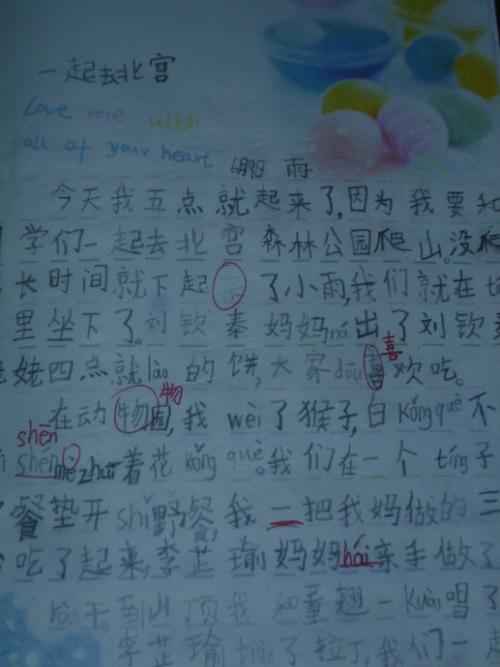 一起去北宫
Love me with
all of your heart
6月9日 雨
今天我五点就起来了,因为我要和
学们一起去北宫森林公园爬山。没爬
长时间就下起来了小雨,我们就在
里坐下了。刘钦秦妈妈ná出了刘钦秦
姥四点就lào的饼,大家dōu喜欢吃。
喜
物
在动物园,我wèi了猴子,白kǒng què不
shén
shénme zhāi着花kǒng què。我们在一个tíng子
餐垫开shǐ野餐,我,一把我妈做的三
吃了起来,李芷瑜妈妈hái亲手做了
ròu干。到山顶我和董翘一kuài唱了
李芷瑜 了拉丁,我们一